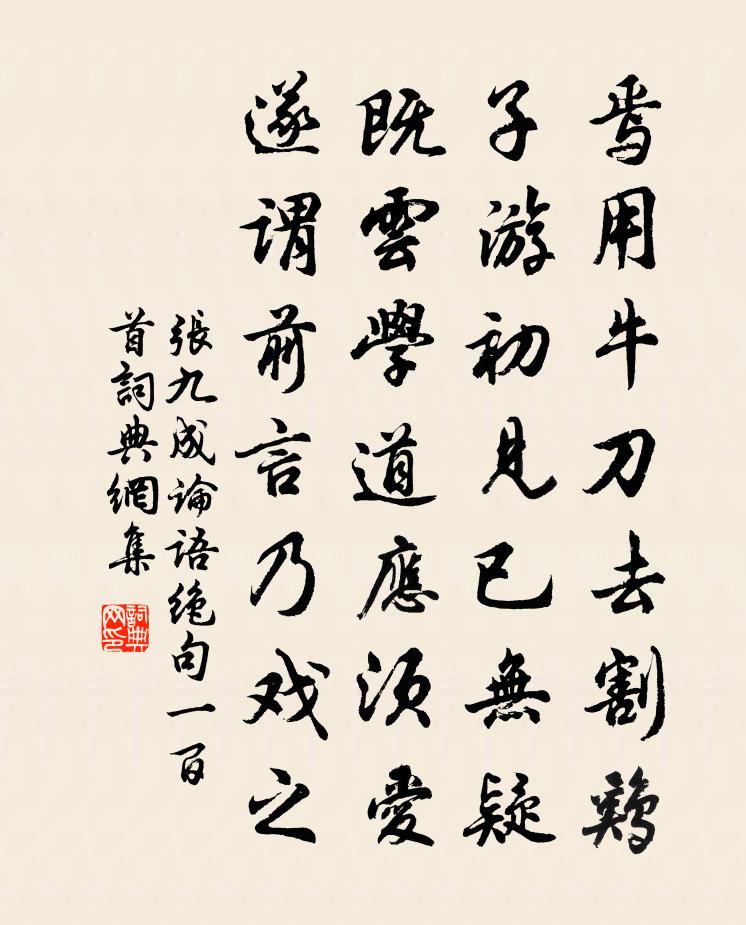 焉用牛刀去割鷄
子游初見已無疑
既雲學道應須愛
遂謂前言乃戏之
張九成論語絶句一百
首詞典網集
詞典网印